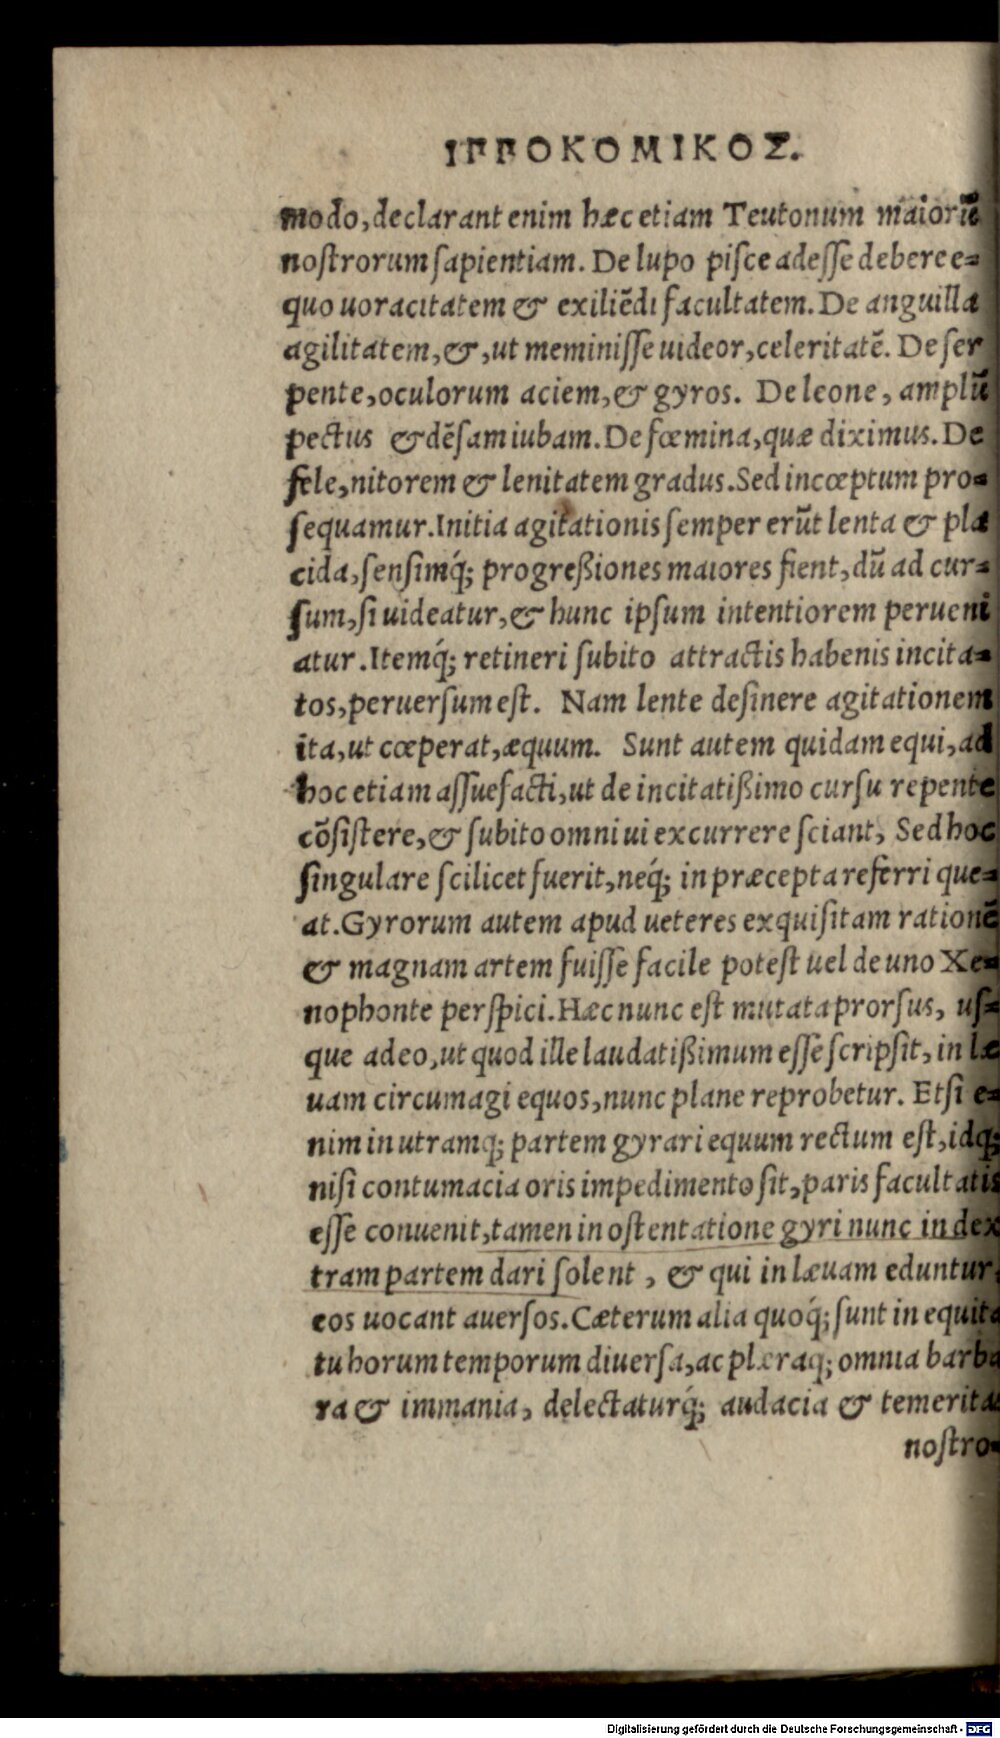 ΙΠΠΟΚΟΜΙΚΟΣ.
modo, declarant enim hæc etiam Teutonum maiorũ
nostrorum sapientiam. De lupo pisce adesse debere e-
quo uoracitatem & exiliẽdi facultatem. De anguilla
agilitatem, &, ut meminisse uideor, celeritatẽ. De ser
pente, oculorum aciem, & gyros. De leone, amplũ
pectus & dẽsam iubam. De fœmina, quæ diximus. De
fele, nitorem & lenitatem gradus. Sed incœptum pro-
sequamur. Initia agitationis semper erũt lenta & pla
cida, sensimq́; progreßiones maiores fient, dũ ad cur-
sum, si uideatur, & hunc ipsum intentiorem perueni
atur. Itemq́; retineri subito attractis habenis incita-
tos, peruersum est. Nam lente desinere agitationem
ita, ut cœperat, æquum. Sunt autem quidam equi, ad
hoc etiam assuefacti, ut de incitatißimo cursu repente
cõsistere, & subito omni ui excurrere sciant, Sed hoc
singulare scilicet fuerit, neq́; in præcepta referri que-
at. Gyrorum autem apud ueteres exquisitam rationẽ
& magnam artem fuisse facile potest uel de uno Xe-
nophonte perspici. Hæc nunc est mutata prorsus, us-
que adeo, ut quod ille laudatißimum esse scripsit, in læ
uam circumagi equos, nunc plane reprobetur. Etsi e-
nim in utramq; partem gyrari equum rectum est, idq;
nisi contumacia oris impedimento sit, paris facultatis
esse conuenit, tamen in ostentatione gyri nunc in dex
tram partem dari solent, & qui in læuam eduntur,
eos uocant auersos. Cæterum alia quoq́; sunt in equita
tu horum temporum diuersa, ac plæraq; omnia barba
ra & immania, delectaturq́; audacia & temerita
nostro-
Digitalisierung gefördert durch die Deutsche Forschungsgemeinschaft - DFG